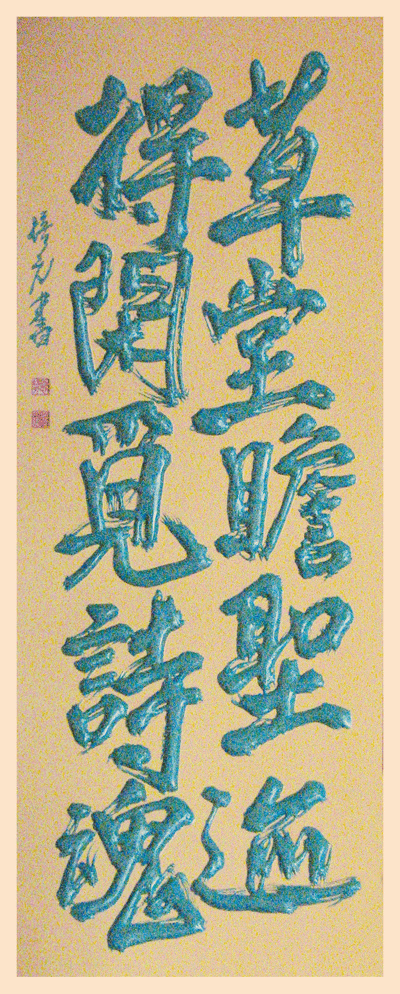 草堂瞻聖迹
得閑覓詩魂
元書